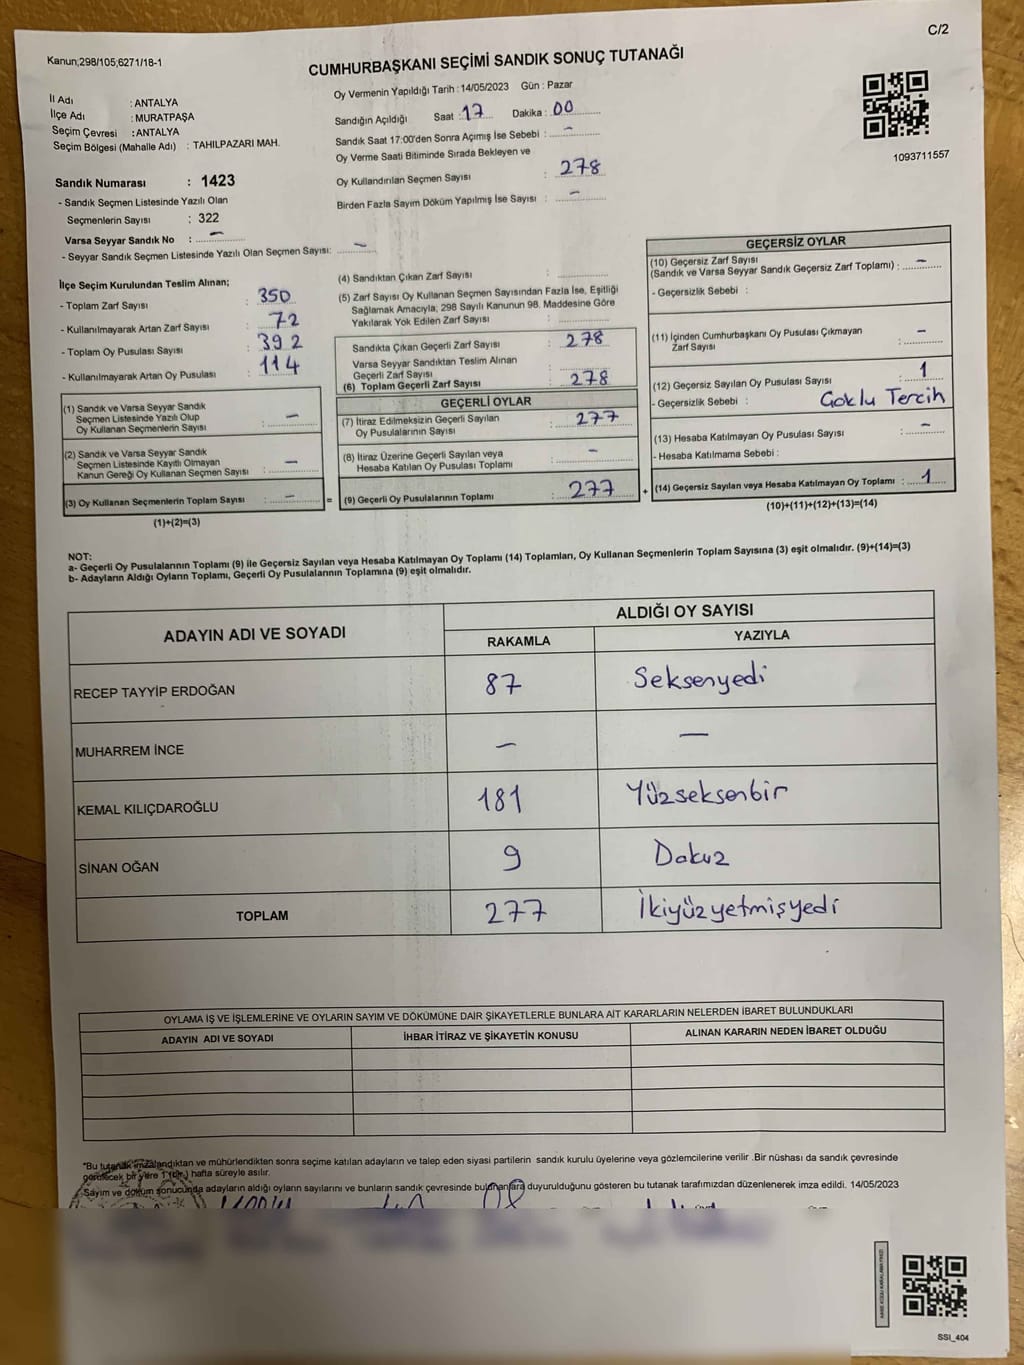 C/2
Kanun;298/105;6271/18-1
CUMHURBAŞKANI SEÇİMİ SANDIK SONUÇ TUTANAĞI
İl Adı : ANTALYA
İlçe Adı : MURATPAŞA
Seçim Çevresi : ANTALYA
Seçim Bölgesi (Mahalle Adı) : TAHILPAZARI MAH.
Sandık Numarası : 1423
- Sandık Seçmen Listesinde Yazılı Olan
Seçmenlerin Sayısı : 322
Varsa Seyyar Sandık No : –
- Seyyar Sandık Seçmen Listesinde Yazılı Olan Seçmen Sayısı: –
Oy Vermenin Yapıldığı Tarih : 14/05/2023 Gün : Pazar
Sandığın Açıldığı Saat : 17 Dakika : 00
Sandık Saat 17:00'den Sonra Açımış İse Sebebi : –
Oy Verme Saati Bitiminde Sırada Bekleyen ve
Oy Kullandırılan Seçmen Sayısı : 278
Birden Fazla Sayım Döküm Yapılmış İse Sayısı : –
1093711557
İlçe Seçim Kurulundan Teslim Alınan;
- Toplam Zarf Sayısı : 350
- Kullanılmayarak Artan Zarf Sayısı : 72
- Toplam Oy Pusulası Sayısı : 392
- Kullanılmayarak Artan Oy Pusulası : 114
(1) Sandık ve Varsa Seyyar Sandık
Seçmen Listesinde Yazılı Olup
Oy Kullanan Seçmenlerin Sayısı : –
(2) Sandık ve Varsa Seyyar Sandık
Seçmen Listesinde Kayıtlı Olmayan
Kanun Gereği Oy Kullanan Seçmen Sayısı : –
(3) Oy Kullanan Seçmenlerin Toplam Sayısı : – =
(1)+(2)=(3)
(4) Sandıktan Çıkan Zarf Sayısı :
(5) Zarf Sayısı Oy Kullanan Seçmen Sayısından Fazla İse, Eşitliği
Sağlamak Amacıyla; 298 Sayılı Kanunun 98. Maddesine Göre
Yakılarak Yok Edilen Zarf Sayısı :
Sandıkta Çıkan Geçerli Zarf Sayısı : 278
Varsa Seyyar Sandıktan Teslim Alınan
Geçerli Zarf Sayısı :
(6) Toplam Geçerli Zarf Sayısı : 278
GEÇERLİ OYLAR
(7) İtiraz Edilmeksizin Geçerli Sayılan
Oy Pusulalarının Sayısı : 277
(8) İtiraz Üzerine Geçerli Sayılan veya
Hesaba Katılan Oy Pusulası Toplamı : –
(9) Geçerli Oy Pusulalarının Toplamı : 277 +
GEÇERSİZ OYLAR
(10) Geçersiz Zarf Sayısı
(Sandık ve Varsa Seyyar Sandık Geçersiz Zarf Toplamı) : –
- Geçersizlik Sebebi :
(11) İçinden Cumhurbaşkanı Oy Pusulası Çıkmayan
Zarf Sayısı : –
(12) Geçersiz Sayılan Oy Pusulası Sayısı : 1
- Geçersizlik Sebebi : Çoklu Tercih
(13) Hesaba Katılmayan Oy Pusulası Sayısı : –
- Hesaba Katılmama Sebebi :
(14) Geçersiz Sayılan veya Hesaba Katılmayan Oy Toplamı : 1
(10)+(11)+(12)+(13)=(14)
NOT:
a- Geçerli Oy Pusulalarının Toplamı (9) ile Geçersiz Sayılan veya Hesaba Katılmayan Oy Toplamı (14) Toplamları, Oy Kullanan Seçmenlerin Toplam Sayısına (3) eşit olmalıdır. (9)+(14)=(3)
b- Adayların Aldığı Oyların Toplamı, Geçerli Oy Pusulalarının Toplamına (9) eşit olmalıdır.
ADAYIN ADI VE SOYADI ALDIĞI OY SAYISI
RAKAMLA YAZIYLA
RECEP TAYYİP ERDOĞAN 87 Seksenyedi
MUHARREM İNCE – –
KEMAL KILIÇDAROĞLU 181 Yüzseksenbir
SİNAN OĞAN 9 Dokuz
TOPLAM 277 İkiyüzyetmişyedi
OYLAMA İŞ VE İŞLEMLERİNE VE OYLARIN SAYIM VE DÖKÜMÜNE DAİR ŞİKAYETLERLE BUNLARA AİT KARARLARIN NELERDEN İBARET BULUNDUKLARI
ADAYIN ADI VE SOYADI İHBAR İTİRAZ VE ŞİKAYETİN KONUSU ALINAN KARARIN NEDEN İBARET OLDUĞU
*Bu tutanak imzalandıktan ve mühürlendikten sonra seçime katılan adayların ve talep eden siyasi partilerin sandık kurulu üyelerine veya gözlemcilerine verilir .Bir nüshası da sandık çevresinde
görülecek bir yere 1 (bir) hafta süreyle asılır.
Sayım ve döküm sonucunda adayların aldığı oyların sayılarını ve bunların sandık çevresinde bulunanlara duyurulduğunu gösteren bu tutanak tarafımızdan düzenlenerek imza edildi. 14/05/2023
SSI_404